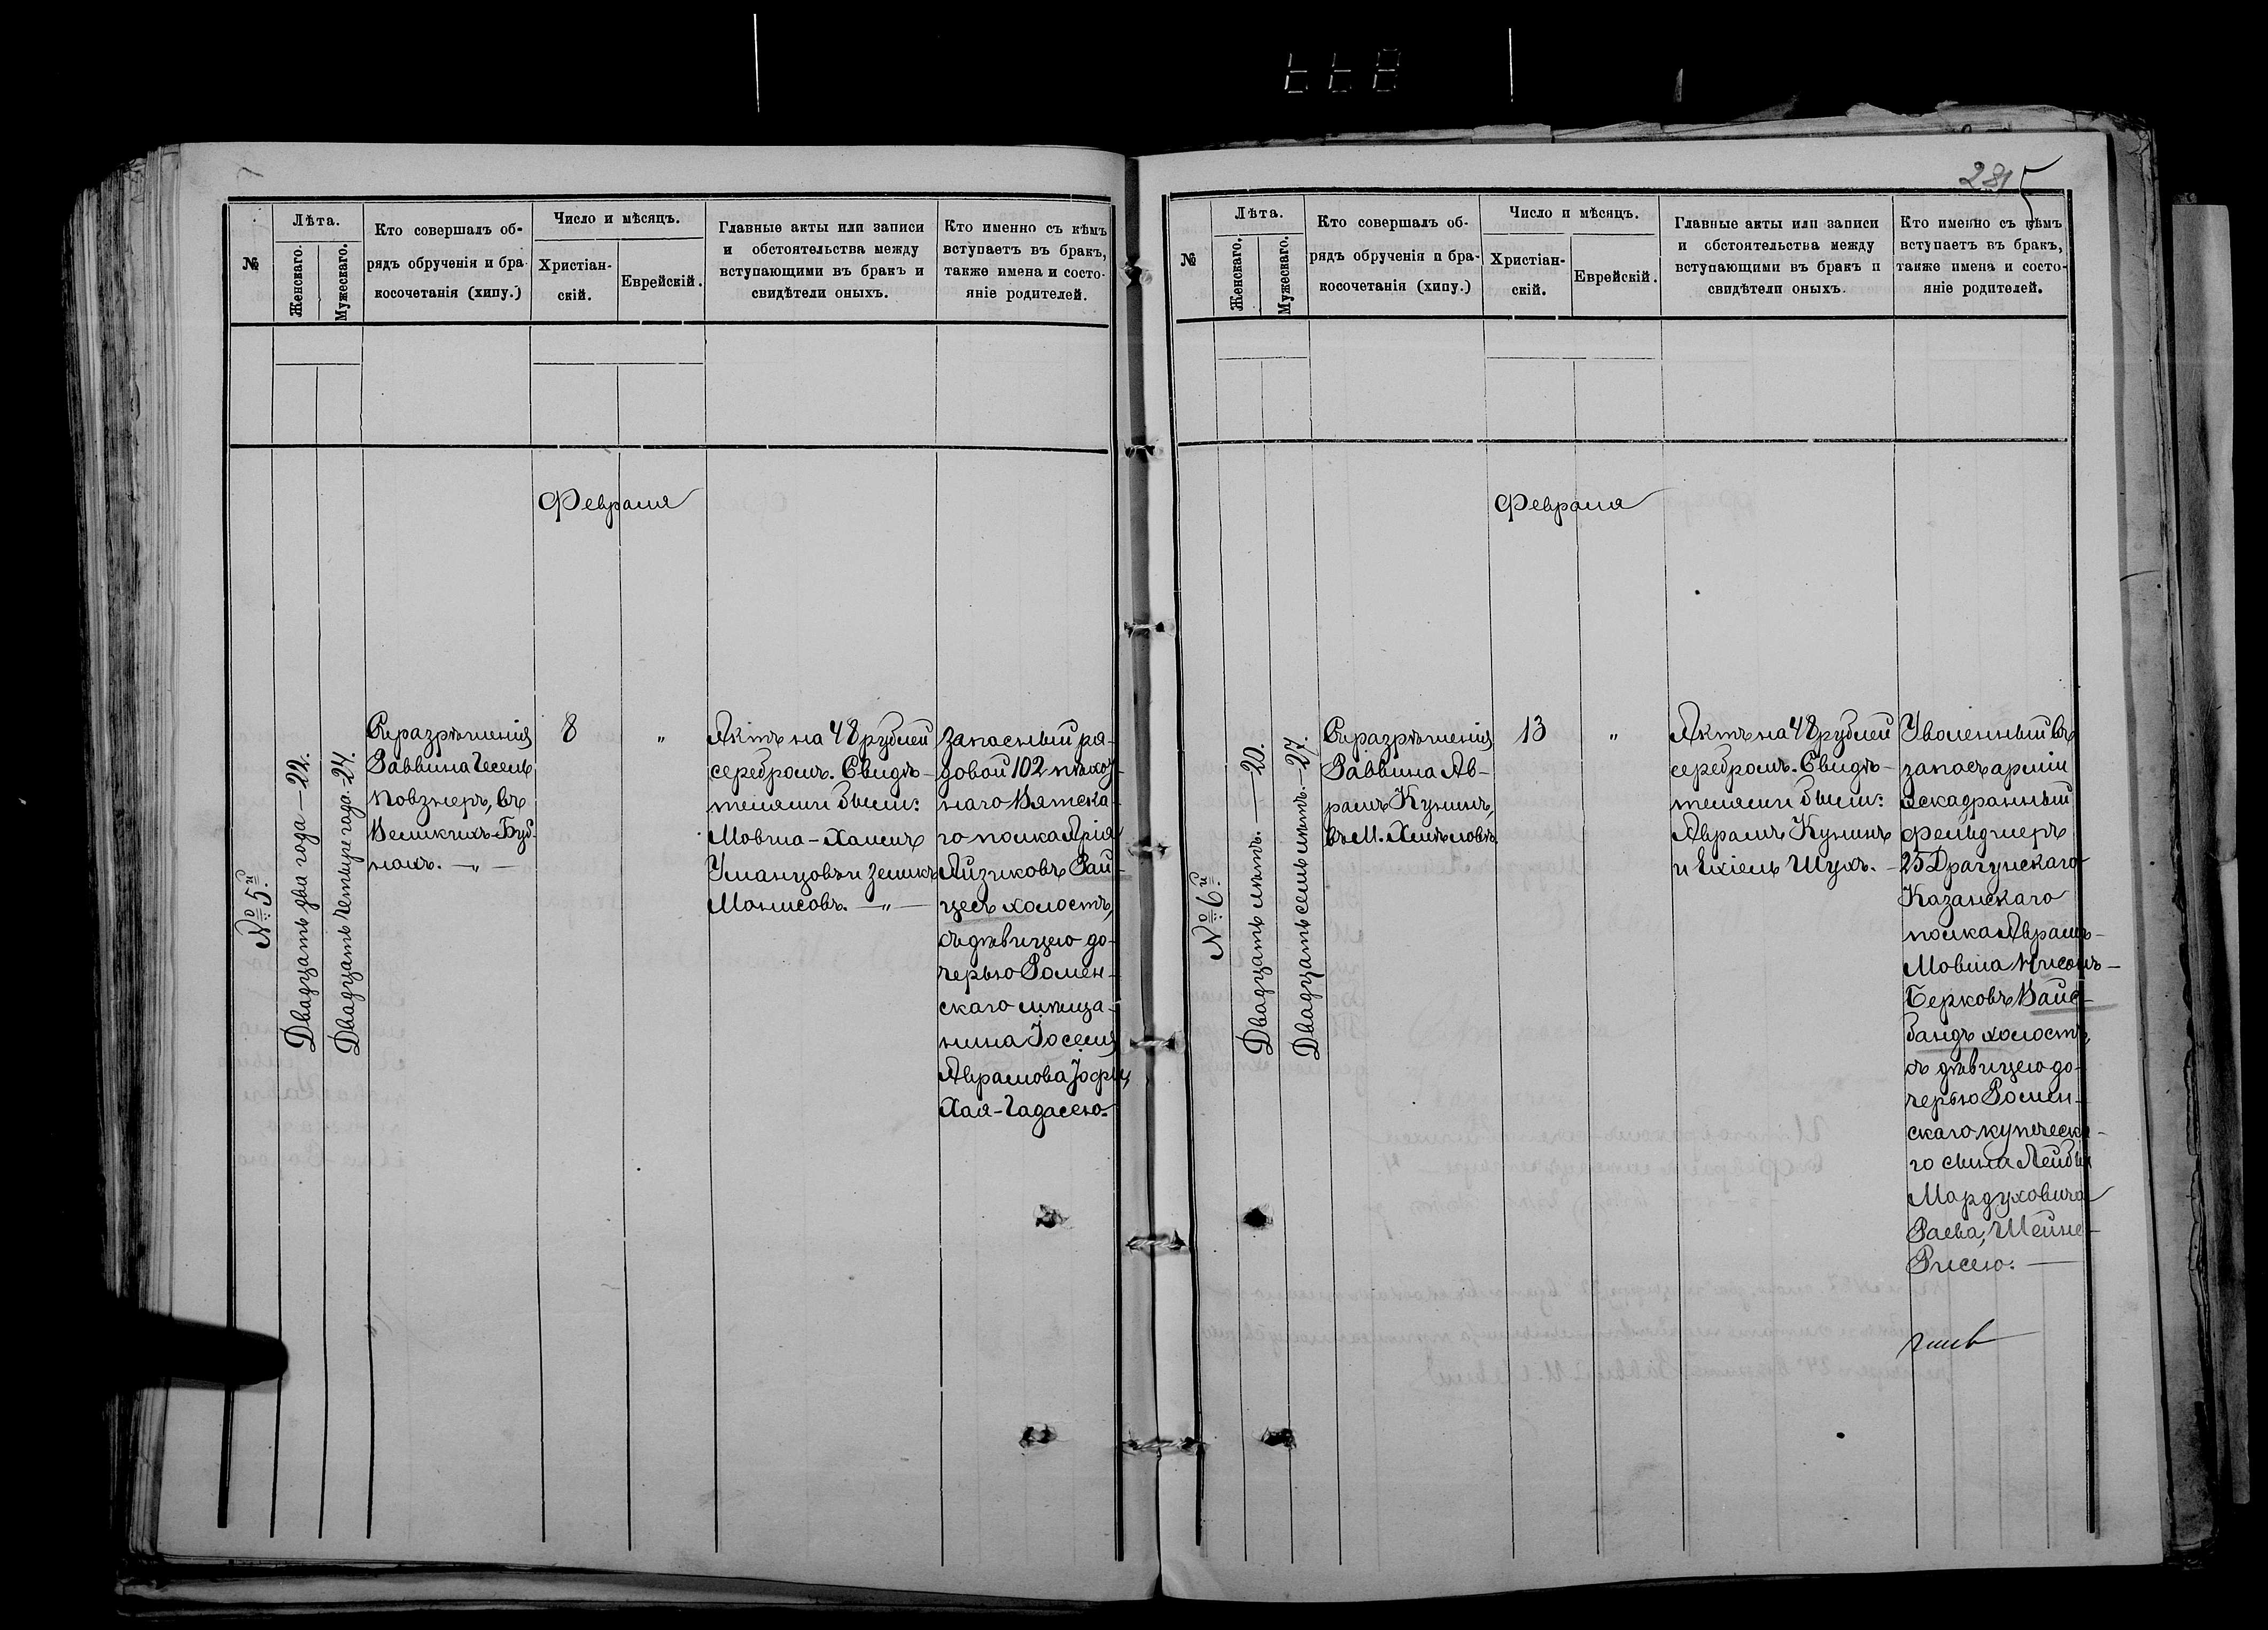 №
Лѣта.
Женскаго.
Мужескаго.
Кто совершалъ об-
рядъ обрученія и бра-
косочетанія (хипу.)
Число и мѣсяцъ.
Христіан-
скій.
Еврейскій.
Главные акты или записи
и обстоятельства между
вступающими въ бракъ и
свидѣтели оныхъ.
Кто именно съ кѣмъ
вступаетъ въ бракъ,
также имена и состо-
яніе родителей.
Февраля
№ 5й
Двадцать два года — 22.
Двадцать четыре года. 24.
Съ разрѣшенія
Раввина Гесель
Повзнеръ, въ
Великихъ-Буд-
кахъ. — „ —
8
„
Актъ на 48 рублей
серебромъ. Свидѣ-
телями были:
Мовша-Хаимъ
Уманцовъ и Зеликъ
Монисовъ. — „ —
Запасный ря-
довой 102 пѣхот-
наго Вятска-
го полка Арія
Айзиковъ Зай-
цесъ холостъ,
съ дѣвицею до-
черью Ромен-
скаго мѣща-
нина Іоселя
Абрамова Іофы
Хая-Гадасею.
285
№
Лѣта.
Женскаго.
Мужескаго.
Кто совершалъ об-
рядъ обрученія и бра-
косочетанія (хипу.)
Число и мѣсяцъ.
Христіан-
скій.
Еврейскій.
Главные акты или записи
и обстоятельства между
вступающими въ бракъ и
свидѣтели оныхъ.
Кто именно съ кѣмъ
вступаетъ въ бракъ,
также имена и состо-
яніе родителей.
Февраля
№ 6й
Двадцать лѣтъ. — 20.
Двадцать семь лѣтъ. — 27.
Съ разрѣшенія
Раввина Ав-
рамъ Кунинъ,
въ М. Хмѣловѣ.
13
„
Актъ на 48 рублей
серебромъ. Свидѣ-
телями были:
Аврамъ Кунинъ
и Ехіель Шухъ. —
Уволенный въ
запасъ арміи
эскадранный
фельдшеръ
25 Драгунскаго
Казанскаго
полка Абрамъ-
Мовша Нисонъ-
Берковъ Вайс-
бандъ холостъ,
съ дѣвицею до-
черью Ромен-
скаго купеческа-
го сына Лейбы
Мордуховича
Раева, Шейне-
Рисею. —